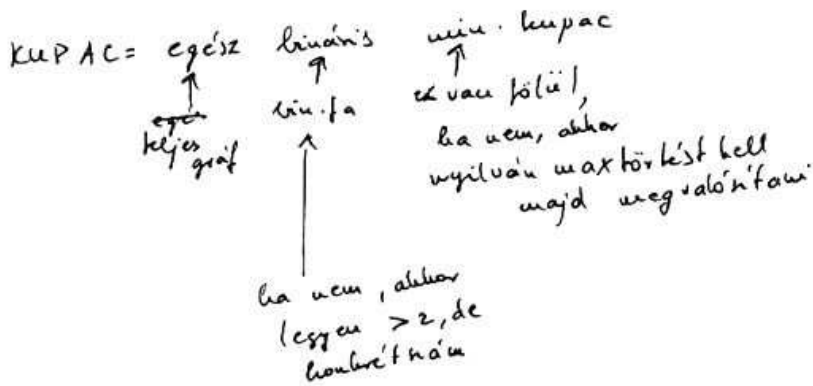 KUPAC= egész bináris min. kupac
egés
teljes gráf
bin.fa
ez van fölül,
ha nem, akkor
nyilván maxtörlést kell
majd megvalósítani
ha nem, akkor
legyen >2, de
konkrét szám